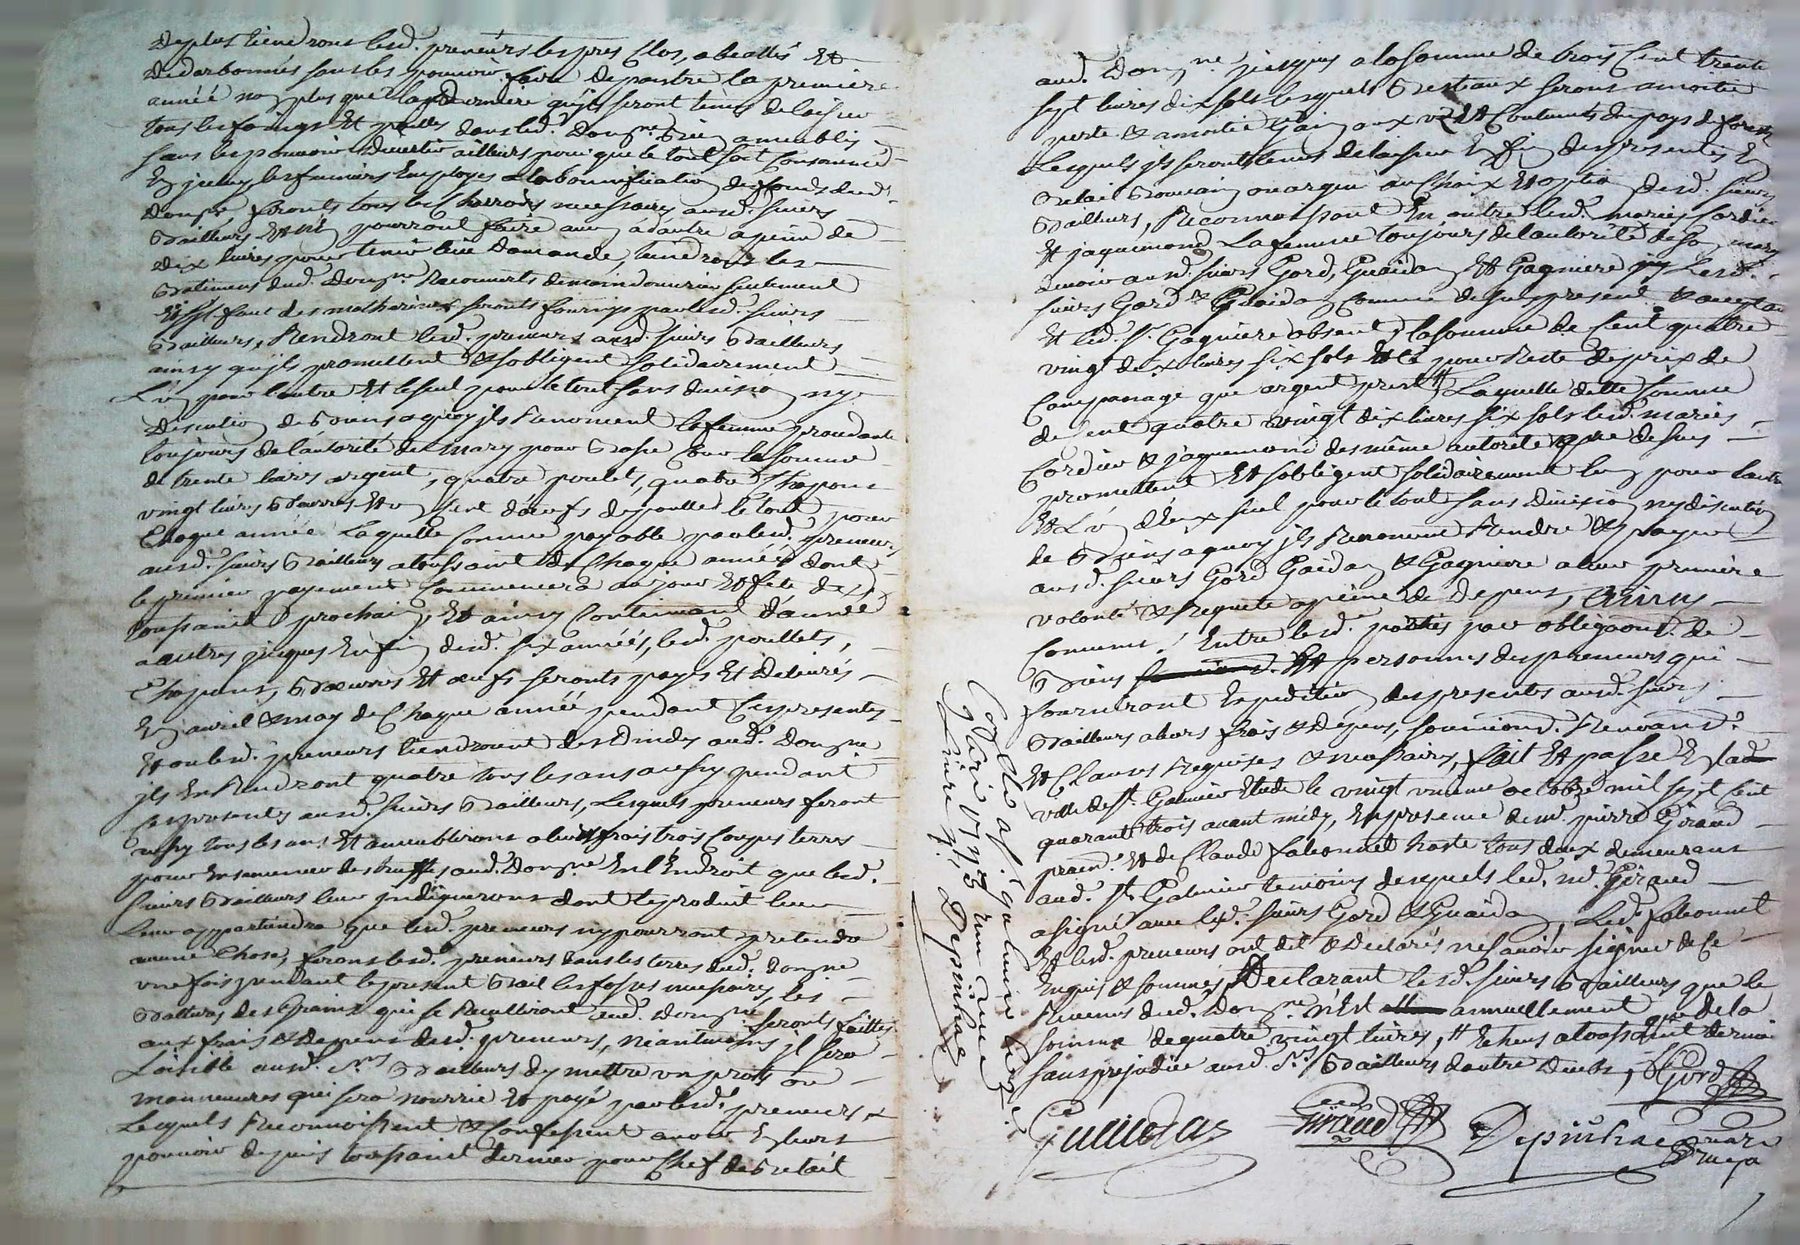 Deplus tiendront lesd. preneurs les prés clos, abealés Et
année non plus que la derniere qu'ils seront tenus de laisser
tous les foings Et pailles dans led. Domne Bien ameublis
sans les pouvoir divertir ailleurs pour que le tout soit consommé
En iceluy les fumiers Employes a la bonnification des fonds dud.
Domne, feronts tous les charrois necessaires ausd. sieurs
Bailleurs Et n'en pourront faire aux autre a peine de
dix livres pour tenir lieu Damande, tiendront les
Batimens dud. Domne Recouverts de main d'ouvrier seulement
Et s'il faut des matheriaux seronts fournys par lesd. sieurs
Bailleurs, Rendront lesd. preneurs ausd. sieurs Bailleurs
ainsy qu'ils promettent & s'obligent solidairement
L'un pour l'autre Et le seul pour le tout sans division ny
Discution de Biens a quoy ils Renoncent la femme procedante
toujours de l'autorité de mary pour
de trente livres argent, quatre poulets, quatre chapons
vingt livres Beurre Et un cent d'oeufs de poulles le tout pour
Chaque année Laquelle somme payable par lesd. preneurs
ausd. sieurs Bailleurs a toussaint de chaque année dont
le premier payement Commencera au jour Et fete de
toussaint prochain, Et ainsy Continuant d'année
a autres jusques En fin desd. six années, lesd. poullets,
Chapons, Beurres Et oeufs seronts payés Et delivrés
En avril & may de Chaque année pendant Ces presentes
Et ou lesd. preneurs tiendroient des Dindes aud. Domne
ils En Rendront quatre tous les ans aussy pendant
Ces presentes ausd. sieurs Bailleurs, Lesquels preneurs feront
aussy tous les ans Et ameubliront a leurs frais trois coupes terres
pour Ensemencer de truffes aud. Domne En l'Endroit que lesd.
sieurs Bailleurs leur indiqueront dont le produit leur
Leur appartiendra que lesd. preneurs n'y pourront pretendre
aucune Chose, feronts lesd. preneurs dans les terres dud. Domne
une fois pendant le present Bail les fosses necessaires, les
Battures des Grains qui se Recueilliront aud. Domne seronts faittes
aux frais & Depens desd. preneurs, neantmoins il sera
Loisible ausd. Srs Bailleurs d'y mettre un
manneuvres qui sera nourrie Et payé par lesd. preneurs
Lesquels Reconnoissent & Confessent avoir En leurs
pouvoir depuis toussaint dernier pour Chef de Betail
aud. Domne jusques a la somme de trois Cent trente
sept livres dix sols lesquels Bestiaux seronts a moitié
perte & a moitié Gain aux us Et Coutumes du pays de forest
Lesquels ils seront tenus de laisser En fin des presentes En
Betail ou argent au Choix Et option desd. sieurs
Bailleurs, Reconnoissant En outre lesd. mariés Cordier
Et jaquemond La femme toujours de l'autorité de son mary
devoir ausd. sieurs Gord, Guaidan Et Gagniere lesd.
sieurs Gord & Guaidan Comme dessus present & acceptant
Et led. Sr. Gagniere absent, la somme de Cent quatre
vingt dix livres six sols pour Reste de prix de
argent presté Laquelle dette somme
de Cent quatre vingt dix livres six sols lesd. mariés
Cordier & jaquemond des même autorité que dessus
promettent Et s'obligent solidairement l'un pour l'autre
Et L'un d'eux seul pour le tout sans division ny discution
de Biens a quoy ils Renoncent Rendre & payer
ausd. sieurs Gord Gaidan & Gagniere a leur premiere
volonté & Requete a peine de Depens, ainsy
Convenu Entre lesd. parties par obligaont. de
Biens Et personnes des preneurs qui
fourniront Expedition des presentes ausd. sieurs
Bailleurs a leurs frais & Depens, soumiond. Renoand.
Et Clauses Requises & necessaires, fait Et passé En lad.
ville de St. Galmier Etude le vingt unieme octobre mil sept cent
quarante trois avant midy, En presence de me. pierre Giraud
pratn. Et de Claude fabonnet hoste tous deux demeurans
aud. St. Galmier temoins desquels led. me. Giraud
a signé avec lesd. sieurs Gord & Guaidan, Led. fabonnet
Et lesd. preneurs ont dit & Declarés ne sçavoir signer de Ce
Enquis & sommés, Declarant lesd. sieurs Bailleurs que le
Revenus dud. Domne n'Est annuellement que de la
somme de quatre vingt livres,
sans prejudice ausd. Srs. Bailleurs d'autre Dueus, Gord
Guaidan Giraud Depinhac
Collé a St. galmier
1743 Reçu
Depinhac